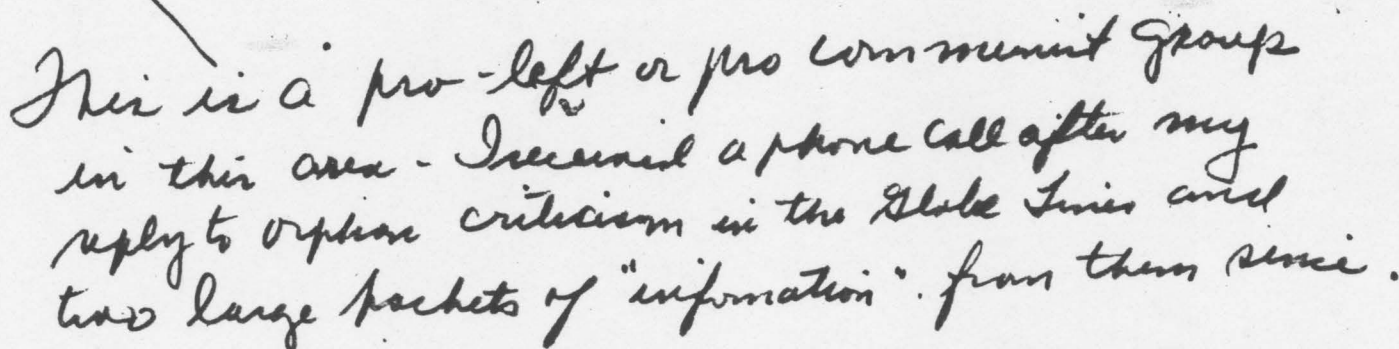 This is a pro-left or pro communist group
in this area - I received a phone call after my
reply to orphan criticism in the Globe Times and
two large packets of "information". from them since.